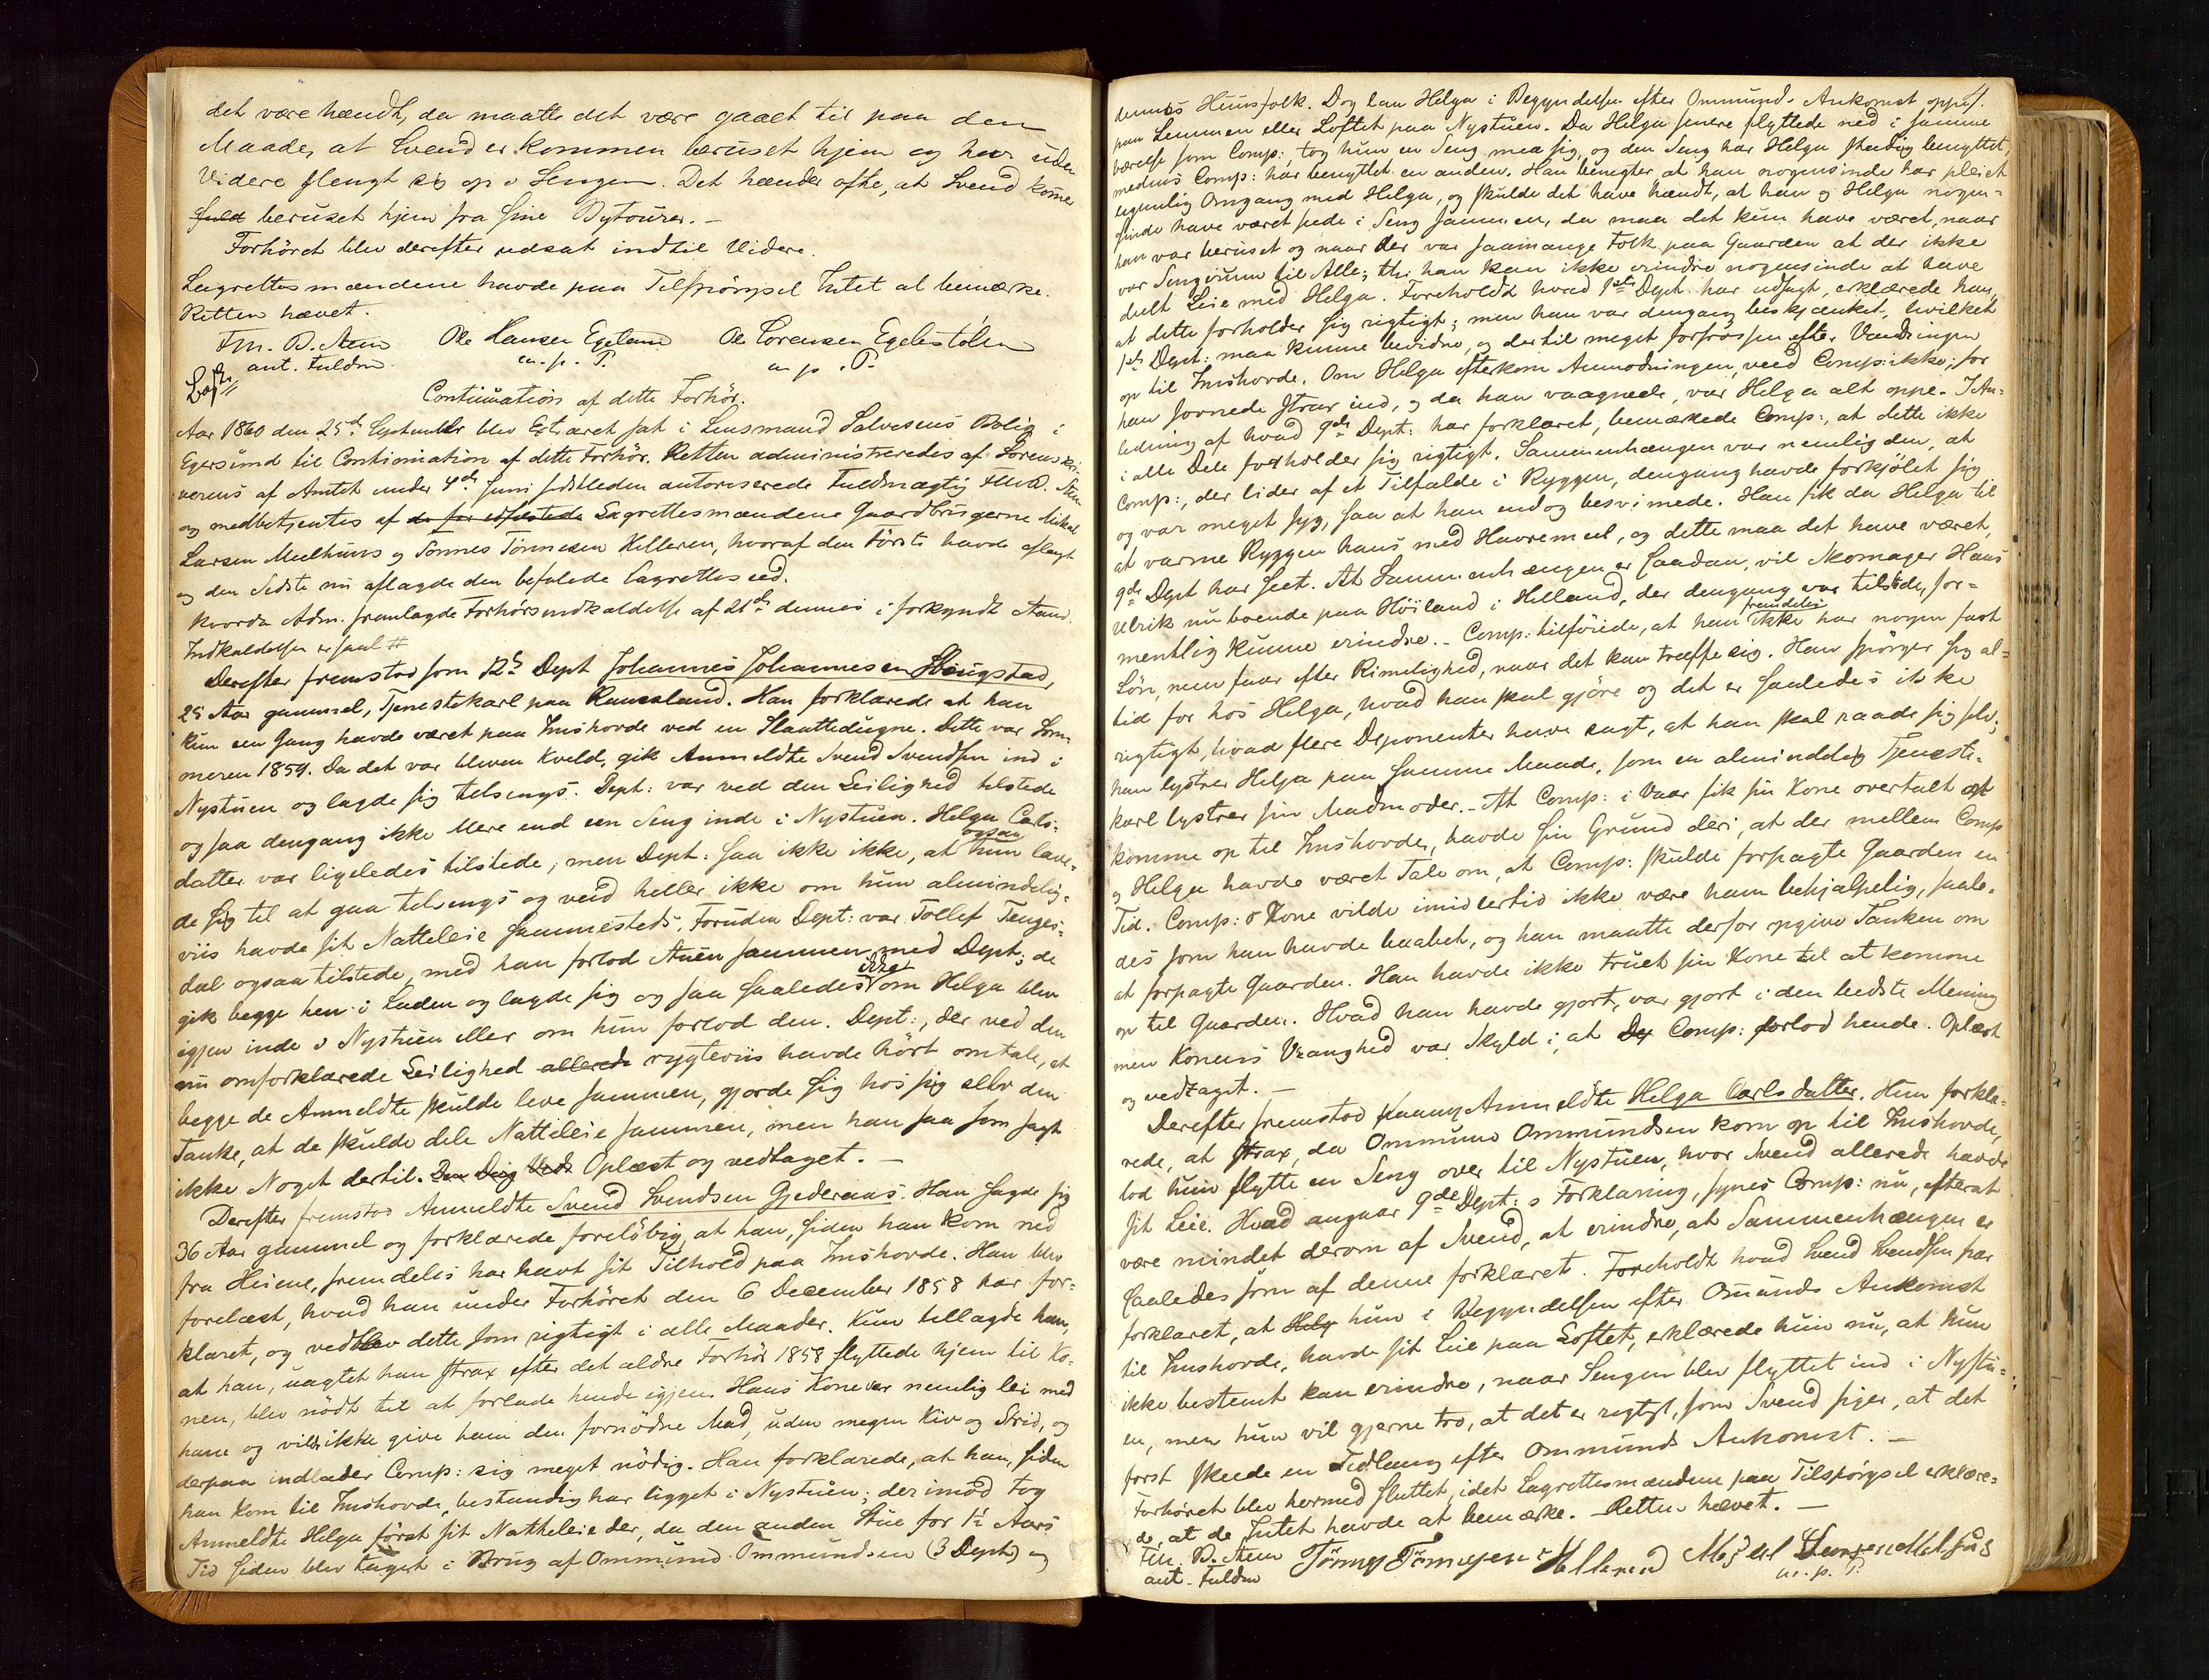 det være hændt, da maatte det være gaaet til paa den
Maade, at Svend er kommen beruset hjem og har uden
Videre slengt sig op i Sengen. Det hænder ofte, at Svend komer
fuld beruset hjem fra sine Bytourer. –
Forhöret blev derefter udsat indtil Videre.
Lagrettesmændene havde paa Tilspörgsel Intet at bemærke.
Retten hævet.
Fm. B. Steen Ole Hansen Egeland Ole Lorensen Egelestölen
aut. Fuldm. m. p. P. m. p. P.
Continuation af dette Forhör.
Aar 1860 den 25de September blev Extraret sat i Lensmand Salvesens Bolig i
Egersund til Continuation af dette Forhör. Retten administreredes af Sorenskri-
verens af Amtet under 4de Juni sidstleden autoriserede Fuldmægtig Fm. B. Steen
og medbetjentes af de for edfæstede Lagrettesmændene Gaardbrugerne Mikal
Larsen Meelhuus og Tönnes Tönnesen Helleren, hvoraf den Förste havde aflagt
og den Sidste nu aflagde den befalede Lagrettesed.
hvorda Adm. fremlagde Forhörsindkaldelse af 21de dennes i forkyndt Stand.
Indkaldelsen er saal #
Derefter fremstod som 12te Dept Johannes Johannesen Skougstad,
25 Aar gammel, Tjenestekarl paa Ramsland. Han forklarede at han
kun een Gang havde været paa Imshovde ved en Slaattedugne. Dette var Som-
meren 1859. Da det var bleven Kveld, gik Anmeldte Svend Svendsen ind i
Nystuen og lagde sig tilsengs. Dept: var ved den Leilighed tilstede
og saa dengang ikke Mere end een Seng inde i Nystuen. Helga Carls-
datter var ligeledes tilstede, men Dept: saa ikke ikke, at ogsaa hun lave-
de sig til at gaa tilsengs og veed heller ikke om hun almindelig-
viis havde sit Natteleie sammesteds. Foruden Dept: var Tollef Tenges-
dal ogsaa tilstede, med han forlod Stuen sammen med Dept; de
gik begge hen i Laden og lagde sig og saa saaledes ikke om Helga blev
igjen inde i Nystuen eller om hun forlod den. Dept:, der ved den
nu omforklarede Leilighed allerede rygteviis havde hört omtale, at
begge de Anmeldte skulde leve sammen, gjorde sig hos sig selv den
Tanke, at de skulde dele Natteleie sammen, men han saa som sagt
ikke Noget dertil. Oplæst og vedtaget. –
Derefter fremstod Anmeldte Svend Svendsen Gjederaas. Han sagde sig
36 Aar gammel og forklarede foreløbig, at han, siden han kom ned
fra Heiene, fremdeles har havt sit Tilhold paa Imshovde. Han blev
forelæst, hvad han under Forhöret den 6 December 1858 har for-
klaret, og vedblev dette som rigtigt i alle Maader. Kun tillagde han,
at han, uagtet han strax efter det ældre Forhör 1858 flyttede hjem til Ko-
nen, blev nödt til at forlade hende igjen. Hans Kone var nemlig lei med
ham og vilde ikke give ham den fornödne Mad, uden megen Kiv og Strid, og
derpaa indlader Comp: sig meget nödig. Han forklarede, at han, siden
han kom til Imshovde, bestandig har ligget i Nystuen; derimod tog
Anmeldte Helga först sit Natteleie der, da den anden Stue for 1½ Aars
Tid siden blev taget i Brug af Ommund Ommundsen (3 Dept) og
dennes Huusfolk. Dog laa Helga i Begyndelsen efter Ommunds Ankomst oppe
paa Lemmen eller Loftet paa Nystuen. Da Helga senere flyttede ned i samme
værelse som Comp:, tog hun en Seng med sig, og den Seng har Helga stadig benyttet,
medens Comp: har benyttet en anden. Han benegter at han nogensinde har pleiet
legemlig Omgang med Helga, og skulde det have hændt, at han og Helga nogen-
sinde have været seede i Seng sammen, da maa det kun have været, naar
han var beruset og naar der var saamange Folk paa Gaarden at der ikke
var Sengerum til Alle; thi han kan ikke erindre nogensinde at have
deelt Leie med Helga. Foreholdt hvad 1ste Dept. har udsagt, erklærede han,
at dette forholder sig rigtigt; men han var dengang beskjænket, hvilket
1ste Dept: maa kunne bevidne, og dertil meget forfrossen efter Vandringen
op til Imshovde. Om Helga efterkom Anmodningen, veed Comp: ikke; for
han sovnede strax ind, og da han vaagnede, var Helga alt oppe. I An-
ledning af hvad 9de Dept: har forklaret, bemærkede Comp:, at dette ikke
i alle Dele forholder sig rigtigt. Sammenhængen var nemlig den, at
Comp:, der lider af et Tilfælde i Ryggen, dengang havde forkjölet sig
og var meget syg, saa at han endog besvimede. Han fik da Helga til
at varme Ryggen hans med Havremeel, og dette maa det have været,
9de Dept har seet. At Sammenhængen er saadan, vil Skomager Hans
Ulrik nu boende paa Höiland i Helland, der dengang var tilstede, for-
mentlig kunne erindre. – Comp: tilföiede, at han fremdeles ikke har nogen fast
Lön, men faar efter Rimelighed, naar det kan træffe sig. Han spörger sig al-
tid for hos Helga, hvad han skal gjöre og det er saaledes ikke
rigtigt, hvad flere Deponenter have sagt, at han skal raade sig selv;
han lystrer Helga paa samme Maade, som en almindelig Tjeneste-
karl lystrer sin Madmoder. – At Comp: i Vaar fik sin Kone overtalt at
komme op til Imshovde, havde sin Grund deri, at der mellem Comp
og Helga havde været Tale om, at Comp: skulde forpagte Gaarden en
Tid. Comp:s Kone vilde imidlertid ikke være ham behjælpelig, saale-
des som han havde haabet, og han maatte derfor opgive Tanken om
at forpagte Gaarden. Han havde ikke truet sin Kone til at komme
op til Gaarden. Hvad han havde gjort, var gjort i den bedste Mening
men Konens Vranghed var Skyld i, at De Comp: forlod hende. Oplæst
og vedtaget. –
Derefter fremstod paany Anmeldte Helga Carlsdatter. Hun forkla-
rede, at strax, da Ommund Ommundsen kom op til Imshovde,
lod hun flytte en Seng over til Nystuen, hvor Svend allerede havde
sit Leie. Hvad angaar 9de Dept:s Forklaring, synes Comp: nu, efterat
være mindet derom af Svend, at erindre, at Sammenhængen er
saaledes som af denne forklaret. Foreholdt hvad Svend Svendsen har
forklaret, at Helg hun i Begyndelsen efter Omunds Ankomst
til Imshovde, havde sit Leie paa Loftet, erklærede hun nu, at hun
ikke bestemt kan erindre, naar Sengen blev flyttet ind i Nystu-
en, men hun vil gjerne tro, at det er rigtigt, som Svend siger, at det
først skede en Tidlang efter Ommunds Ankomst. –
Forhöret blev hermed sluttet, idet Lagrettesmændene paa Tilspörgsel erklære-
de, at de Intet havde at bemærke. – Retten hævet. –
Fm. B. Steen Tönnes Tönnesen Hellereen Mikal Larsen Melhus
aut. Fuldm m. p. P.